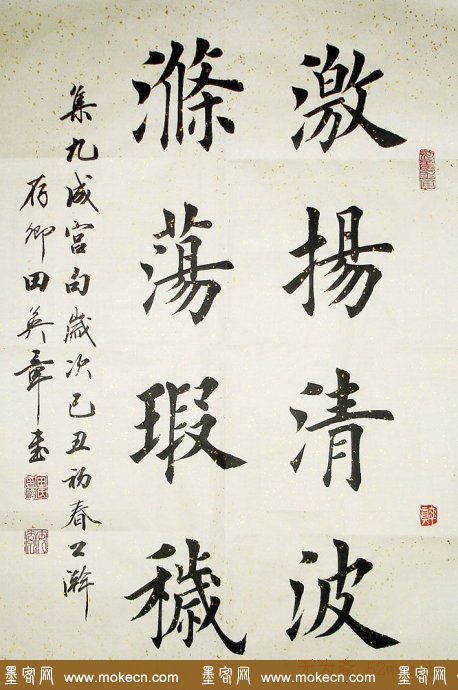 激揚清波
滌蕩瑕穢
集九成宮句歲次己丑初春
存卿田英章書
墨客网 www.mokecn.com 墨客网 www.mokecn.com 墨客网 www.mokecn.com